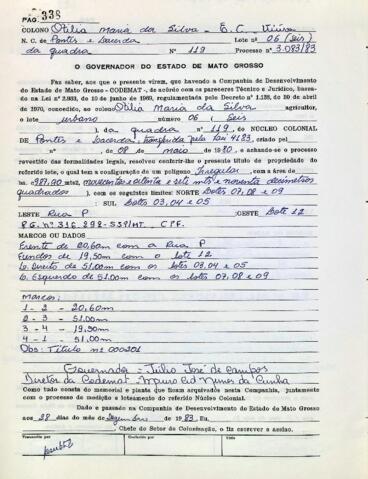 PÁG. 338
COLONO Otilia Maria da Silva - E.C. Viúva
N. C. de Pontes e Lacerda Lote nº 06 (Seis)
da quadra Nº 119 Processo nº 3.083/83
O GOVERNADOR DO ESTADO DE MATO GROSSO
Faz saber, aos que o presente virem, que havendo a Companhia de Desenvolvimento
do Estado de Mato Grosso - CODEMAT -, de acôrdo com os pareceres Técnico e Jurídico, basea-
dos na Lei nº 2.863, de 10 de junho de 1969, regulamentada pelo Decreto nº 1.138, de 20 de abril
de 1970, concedido, ao colono Otilia Maria da Silva agricultor,
o lote urbano número 06 ( Seis
), da quadra nº 119, do NÚCLEO COLONIAL
DE Pontes e Lacerda, pela Lei 4183, criado pel
nº de 08 de maio de 1980, e achando-se o processo
revestido das formalidades legais, resolveu conferir-lhe o presente título de propriedade do
referido lote, o qual tem a configuração de um polígono Irregular, com a área de
987,90 mts2, novecentos e oitenta e sete mts e noventa decímetros
quadrados), com os seguintes limites: NORTE Lotes 07, 08 e 09
SUL Lotes 03, 04 e 05
LESTE Rua P OESTE Lote 12
CPF.
MARCOS OU DADOS
Frente de 20,60m com a Rua P
Fundos de 19,50m com o lote 12
L. Direito de 51.00m com os lotes 03, 04 e 05
L. Esquerdo de 51.00m com os lotes 07, 08 e 09
Marcos:
1 - 2 - 20,60m
2 - 3 - 51.00m
3 - 4 - 19,50m
4 - 1 - 51.00m
Obs: Título nº 000201
Governador - Júlio José de Campos
Diretor da Codemat - Mauro Cid Nunes da Cunha
Como tudo consta do memorial e planta que ficam arquivados nesta Companhia, juntamente
com o processo de medição e loteamento do referido Núcleo Colonial.
Dado e passado na Companhia de Desenvolvimento do Estado de Mato Grosso
aos 28 dias do mês de Dezembro de 1983 Eu,
, Chefe do Setor de Colonização, o fiz escrever e assino.
Transcrito por Conferido por Visto